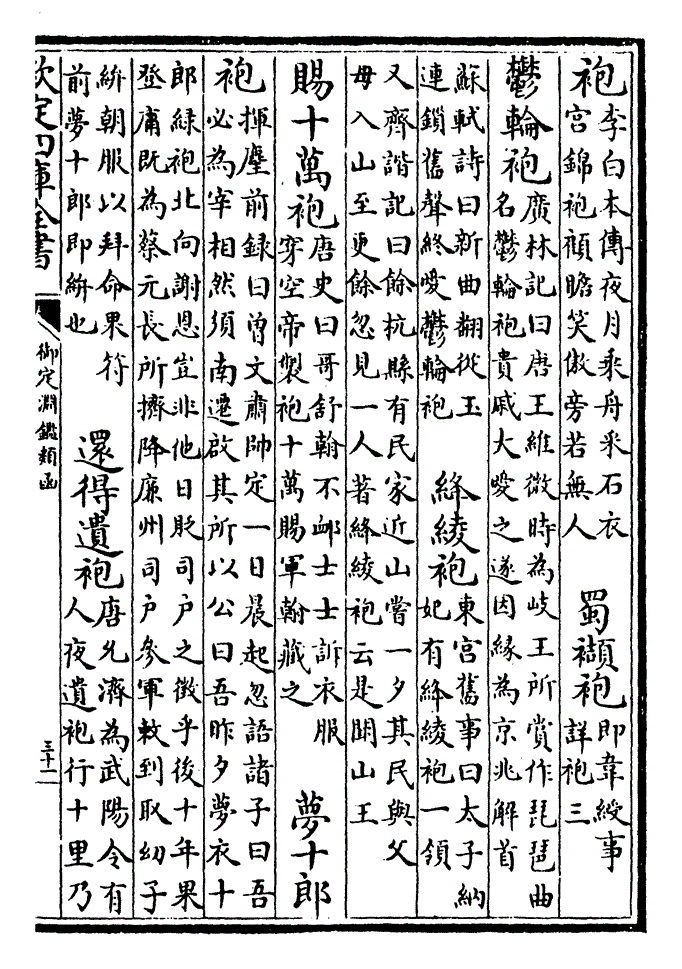 袍李白本傳夜月乘舟采石衣宮錦袍顧瞻笑傲旁若無人 蜀襭袍即韋綬事詳袍三
鬱輪袍廣林記曰唐王維微時為岐王所賞作琵琶曲名鬱輪袍貴戚大愛之遂因緣為京兆解首
蘇軾詩曰新曲翻從玉連鎖舊聲終愛鬱輪袍 絳綾袍東宮舊事曰太子納妃有絳綾袍一領
又齊諧記曰餘杭縣有民家近山嘗一夕其民與父母入山至更餘忽見一人著絳綾袍云是閗山王
賜十萬袍唐史曰哥舒翰不䘏士士訴衣服穿空帝製袍十萬賜軍翰藏之 夢十郎
袍揮麈前録曰曾文肅帥定一日晨起忽語諸子曰吾必為宰相然須南遷啟其所以公曰吾昨夕夢衣十
郎緑袍北向謝恩豈非他日貶司户之徵乎後十年果登庸既為蔡元長所擠降廉州司户參軍敕到取幼子
絣朝服以拜命果符前夢十郎即絣也 還得遺袍唐允濟為武陽令有人夜遺袍行十里乃
欽定四庫全書
御定淵鑑類函
三十一